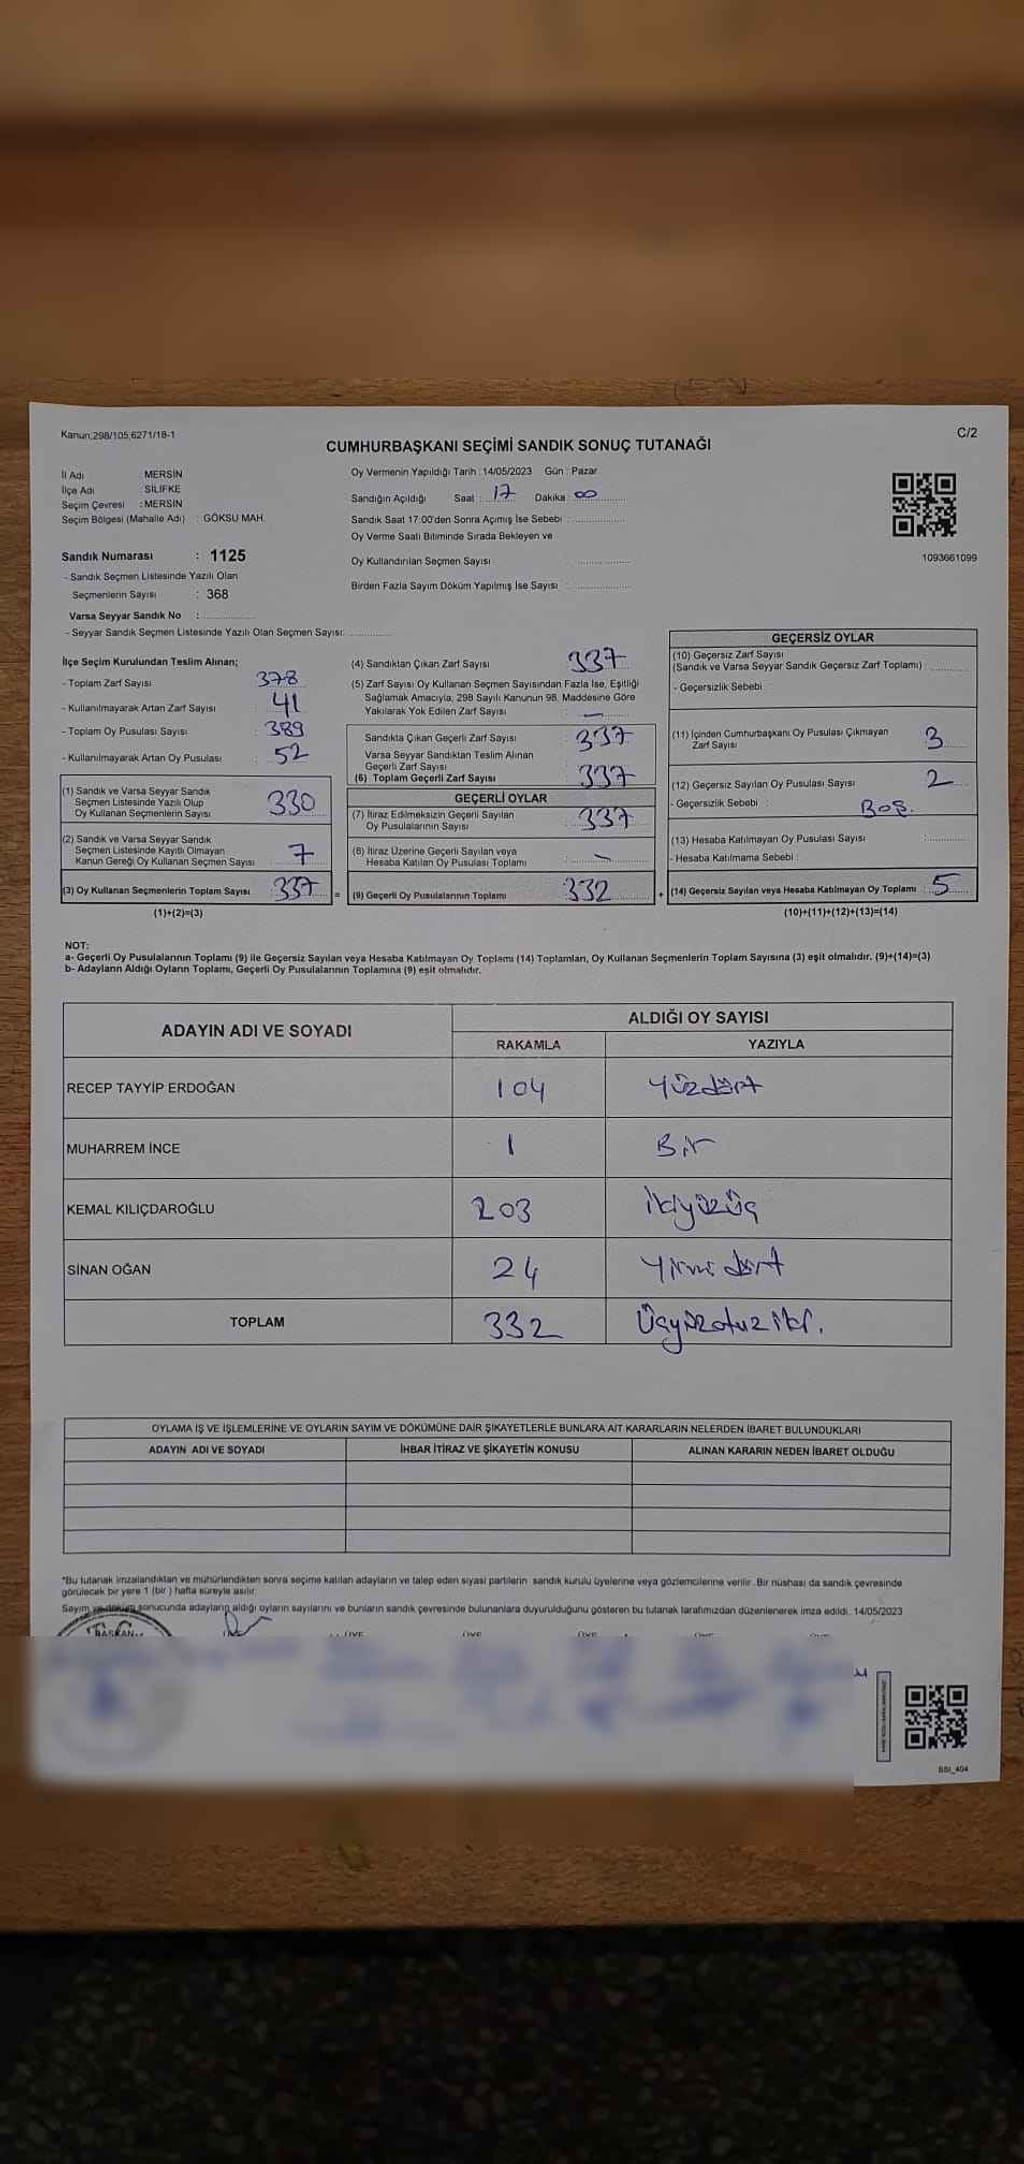 Kanun;298/105,6271/18-1
C/2
CUMHURBAŞKANI SEÇİMİ SANDIK SONUÇ TUTANAĞI
İl Adı : MERSİN
İlçe Adı : SİLİFKE
Seçim Çevresi : MERSİN
Seçim Bölgesi (Mahalle Adı) : GÖKSU MAH.
Sandık Numarası : 1125
- Sandık Seçmen Listesinde Yazılı Olan
Seçmenlerin Sayısı : 368
Varsa Seyyar Sandık No :
- Seyyar Sandık Seçmen Listesinde Yazılı Olan Seçmen Sayısı:
Oy Vermenin Yapıldığı Tarih : 14/05/2023 Gün : Pazar
Sandığın Açıldığı Saat : 17 Dakika : 00
Sandık Saat 17:00'den Sonra Açımış İse Sebebi :
Oy Verme Saati Bitiminde Sırada Bekleyen ve
Oy Kullandırılan Seçmen Sayısı
Birden Fazla Sayım Döküm Yapılmış İse Sayısı :
1093661099
İlçe Seçim Kurulundan Teslim Alınan;
- Toplam Zarf Sayısı : 378
- Kullanılmayarak Artan Zarf Sayısı : 41
- Toplam Oy Pusulası Sayısı : 389
- Kullanılmayarak Artan Oy Pusulası : 52
(1) Sandık ve Varsa Seyyar Sandık
Seçmen Listesinde Yazılı Olup
Oy Kullanan Seçmenlerin Sayısı 330
(2) Sandık ve Varsa Seyyar Sandık
Seçmen Listesinde Kayıtlı Olmayan
Kanun Gereği Oy Kullanan Seçmen Sayısı 7
(3) Oy Kullanan Seçmenlerin Toplam Sayısı 337 =
(1)+(2)=(3)
(4) Sandıktan Çıkan Zarf Sayısı 337
(5) Zarf Sayısı Oy Kullanan Seçmen Sayısından Fazla İse, Eşitliği
Sağlamak Amacıyla, 298 Sayılı Kanunun 98. Maddesine Göre
Yakılarak Yok Edilen Zarf Sayısı : —
Sandıkta Çıkan Geçerli Zarf Sayısı : 337
Varsa Seyyar Sandıktan Teslim Alınan
Geçerli Zarf Sayısı
(6) Toplam Geçerli Zarf Sayısı 337
GEÇERLİ OYLAR
(7) İtiraz Edilmeksizin Geçerli Sayılan
Oy Pusulalarının Sayısı : 337
(8) İtiraz Üzerine Geçerli Sayılan veya
Hesaba Katılan Oy Pusulası Toplamı : –
(9) Geçerli Oy Pusulalarının Toplamı : 332 +
GEÇERSİZ OYLAR
(10) Geçersiz Zarf Sayısı
(Sandık ve Varsa Seyyar Sandık Geçersiz Zarf Toplamı) :
- Geçersizlik Sebebi :
(11) İçinden Cumhurbaşkanı Oy Pusulası Çıkmayan
Zarf Sayısı 3
(12) Geçersiz Sayılan Oy Pusulası Sayısı 2
- Geçersizlik Sebebi : Boş.
(13) Hesaba Katılmayan Oy Pusulası Sayısı :
- Hesaba Katılmama Sebebi :
(14) Geçersiz Sayılan veya Hesaba Katılmayan Oy Toplamı : 5
(10)+(11)+(12)+(13)=(14)
NOT:
a- Geçerli Oy Pusulalarının Toplamı (9) ile Geçersiz Sayılan veya Hesaba Katılmayan Oy Toplamı (14) Toplamları, Oy Kullanan Seçmenlerin Toplam Sayısına (3) eşit olmalıdır. (9)+(14)=(3)
b- Adayların Aldığı Oyların Toplamı, Geçerli Oy Pusulalarının Toplamına (9) eşit olmalıdır.
ADAYIN ADI VE SOYADI
ALDIĞI OY SAYISI
RAKAMLA YAZIYLA
RECEP TAYYİP ERDOĞAN 104 Yüzdört
MUHARREM İNCE 1 Bir
KEMAL KILIÇDAROĞLU 203 İkiyüzüç
SİNAN OĞAN 24 Yirmi dört
TOPLAM 332 Üçyüzotuz iki.
OYLAMA İŞ VE İŞLEMLERİNE VE OYLARIN SAYIM VE DÖKÜMÜNE DAİR ŞİKAYETLERLE BUNLARA AİT KARARLARIN NELERDEN İBARET BULUNDUKLARI
ADAYIN ADI VE SOYADI İHBAR İTİRAZ VE ŞİKAYETİN KONUSU ALINAN KARARIN NEDEN İBARET OLDUĞU
*Bu tutanak imzalandıktan ve mühürlendikten sonra seçime katılan adayların ve talep eden siyasi partilerin sandık kurulu üyelerine veya gözlemcilerine verilir. Bir nüshası da sandık çevresinde
görülecek bir yere 1 (bir ) hafta süreyle asılır.
Sayım ve döküm sonucunda adayların aldığı oyların sayılarını ve bunların sandık çevresinde bulunanlara duyurulduğunu gösteren bu tutanak tarafımızdan düzenlenerek imza edildi. 14/05/2023
T.C.
BAŞKAN
BSI_404